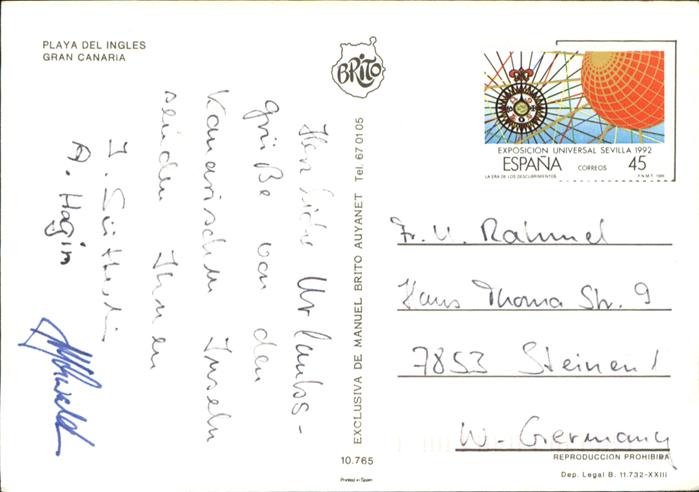 PLAYA DEL INGLES
GRAN CANARIA
BRITO
Herzliche Urlaubs-
grüße von den
Kanarischen Inseln
senden Ihnen
A. Hagin
EXCLUSIVA DE MANUEL BRITO AUYANET Tel. 67 01 05
10.765
Printed in Spain
EXPOSICION UNIVERSAL SEVILLA 1992
ESPAÑA CORREOS 45
LA ERA DE LOS DESCUBRIMIENTOS F.N.M.T. 1986
Fr. U. Rahmel
Hans Thoma Str. 9
7853 Steinen 1
W-Germany
REPRODUCCION PROHIBIDA
Dep. Legal B. 11.732-XXIII